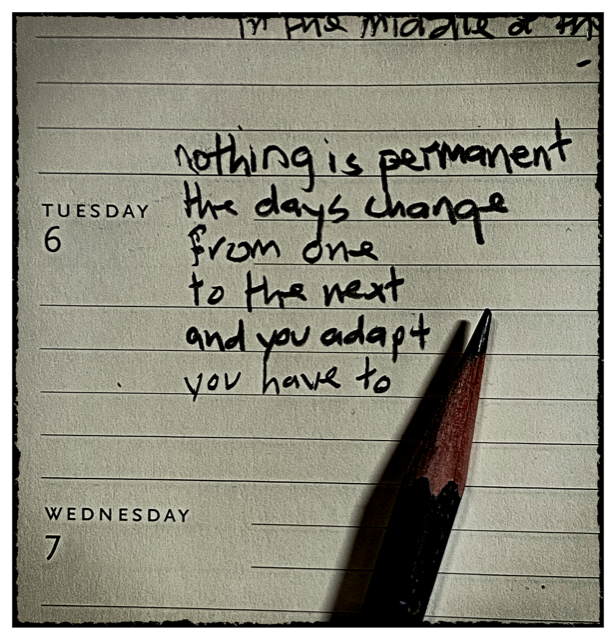 In the middle
nothing is permanent
TUESDAY the days change
6 from one
to the next
and you adapt
you have to
WEDNESDAY
7